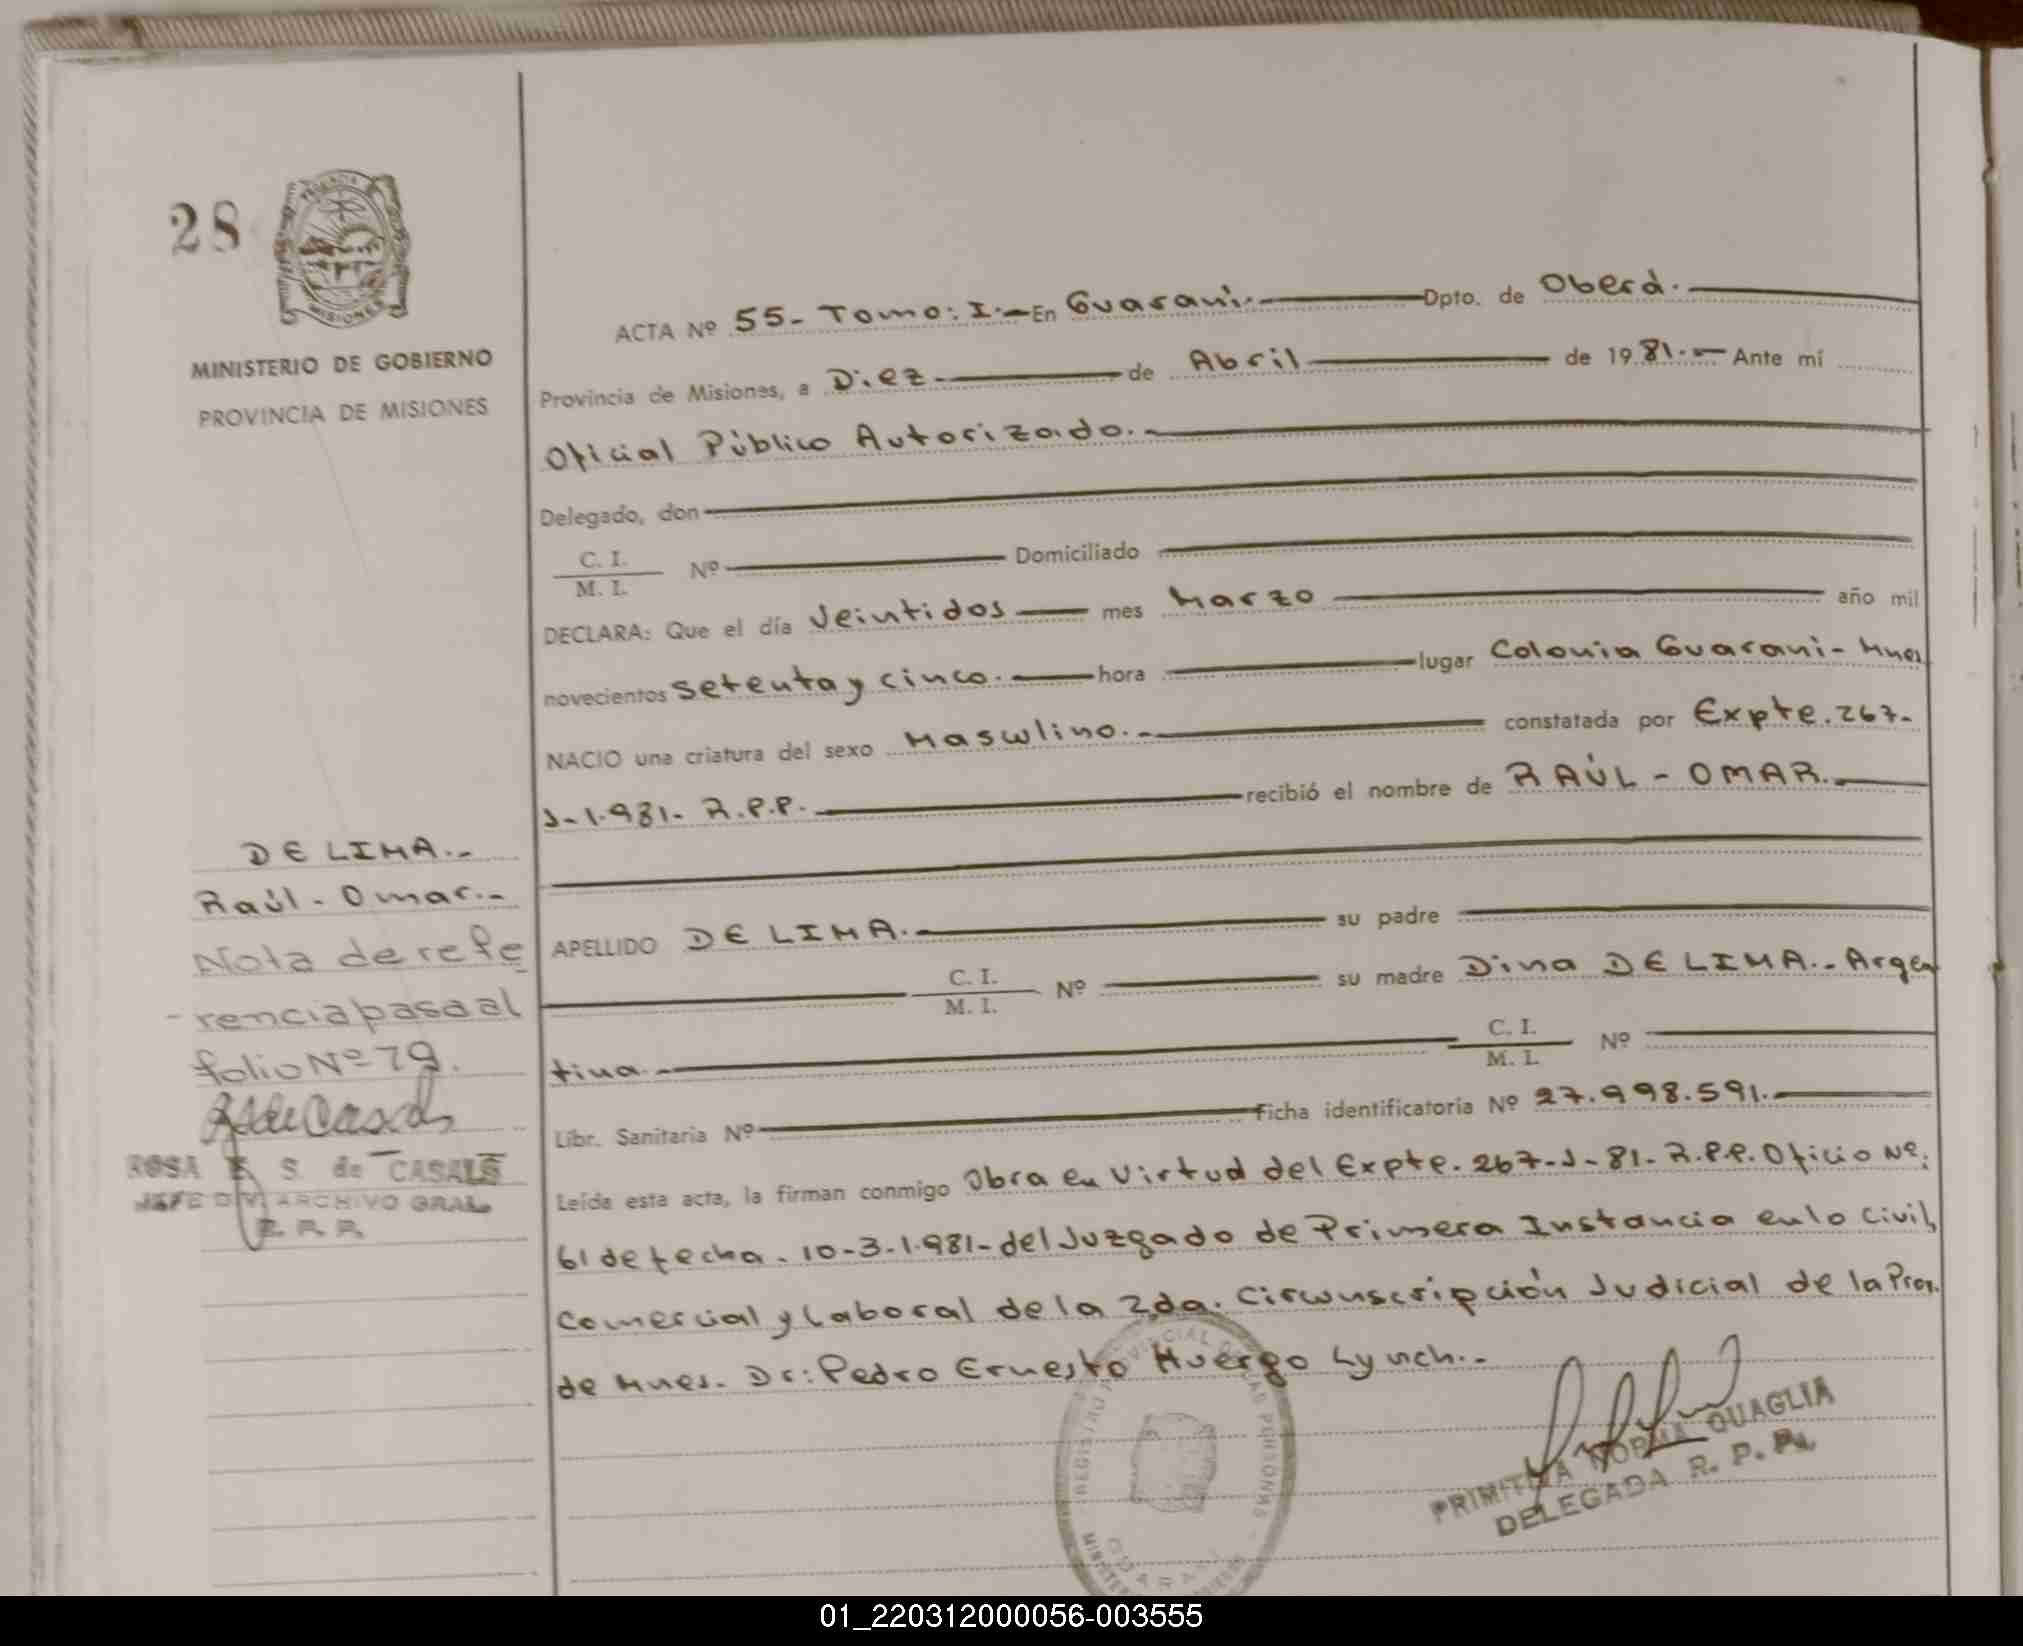 28
PROVINCIA
MISIONES
MINISTERIO DE GOBIERNO
PROVINCIA DE MISIONES
ACTA Nº 55- Tomo: I.- En Guaraní.- Dpto. de Oberá.
Provincia de Misiones, a Diez de Abril de 1981.- Ante mí
Oficial Público Autorizado.-
Delegado, don
C. I.
M. I. Nº Domiciliado
DECLARA: Que el día Veintidos mes Marzo año mil
novecientos setenta y cinco. hora lugar Colonia Guarani- Mnes
NACIO una criatura del sexo Masculino.- constatada por Expte. 267-
J-1.981- R.P.P. recibió el nombre de RAÚL - OMAR.
APELLIDO DE LIMA. su padre
C. I.
M. I. Nº su madre Dina DE LIMA.- Argen
tina.- C. I.
M. I. Nº
Libr. Sanitaria Nº Ficha identificatoria Nº 27.998.591.
Leída esta acta, la firman conmigo Obra en Virtud del Expte. 267-J-81- R.P.P. Oficio Nº:
61 de fecha. 10-3-1.981- del Juzgado de Primera Instancia en lo Civil,
Comercial y Laboral de la 2da. Circunscripción Judicial de la Prov.
de Mnes. Dr: Pedro Ernesto Huergo Lynch.-
DE LIMA.-
Raúl - Omar.-
Nota de refe
-rencia pasa al
folio Nº 79.
ROSA E. S. de CASALS
JEFE DIV. ARCHIVO GRAL.
R. P. P.
PRIMITIVA NORMA QUAGLIA
DELEGADA R. P. P.
REGISTRO PROVINCIAL DE LAS PERSONAS
GUARANI
01_220312000056-003555